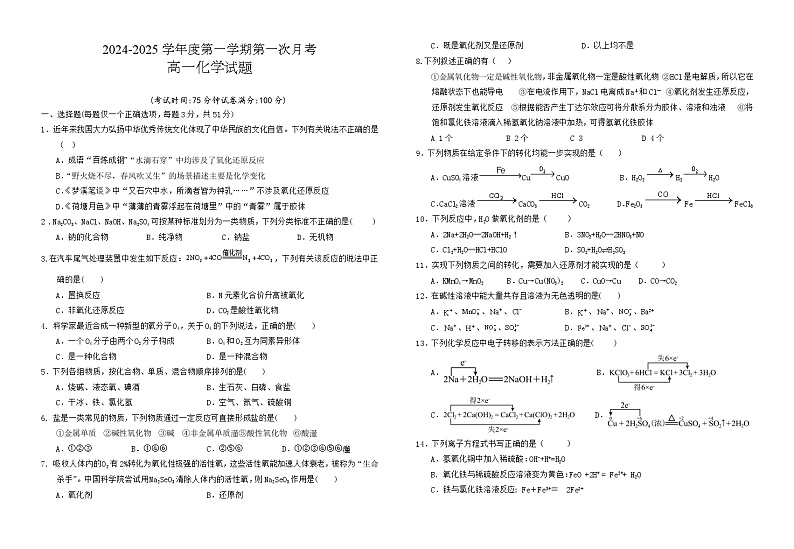 2024-2025 学年度第一学期第一次月考
高一化学试题
(考试时间:75 分钟试卷满分:100 分)
一、选择题(每题仅一个正确选项,每题 3 分,共 51 分)
1. 近年来我国大力弘扬中华优秀传统文化体现了中华民族的文化自信。下列有关说法不正确的是
( )
A. 成语"百炼成钢""水滴石穿"中均涉及了氧化还原反应
B. "野火烧不尽,春风吹又生"的场景描述主要是化学变化
C.《梦溪笔谈》中"又石穴中水,所滴者皆为钟乳……"不涉及氧化还原反应
D.《荷塘月色》中"薄薄的青雾浮起在荷塘里"中的"青雾"属于胶体
2 . Na₂CO₃、NaCl、NaOH、Na₂SO₄可按某种标准划分为一类物质,下列分类标准不正确的是( )
A. 钠的化合物 B. 纯净物 C. 钠盐 D. 无机物
3.在汽车尾气处理装置中发生如下反应:2NO₂+4CO 催化剂 N₂+4CO₂,下列有关该反应的说法中正
确的是( )
A. 置换反应 B. N 元素化合价升高被氧化
C. 非氧化还原反应 D. CO₂是酸性氧化物
4. 科学家最近合成一种新型的氧分子 O₄,关于 O₄的下列说法,正确的是( )
A. 一个 O₄分子由两个 O₂分子构成 B. O₄和 O₂互为同素异形体
C. 是一种化合物 D. 是一种混合物
5. 下列各组物质,按化合物、单质、混合物顺序排列的是( )
A. 烧碱、液态氧、碘酒 B. 生石灰、白磷、食盐
C. 干冰、铁、氯化氢 D. 空气、氮气、硫酸铜
6. 盐是一类常见的物质,下列物质通过一定反应可直接形成盐的是( )
①金属单质 ②碱性氧化物 ③碱 ④非金属单质滷⑤酸性氧化物 ⑥酸滷
A. ①②③ B. ①④⑥ C. ②⑤⑥ D. ①②③④⑤⑥滷
7. 吸收人体内的O₂有2%转化为氧化性极强的活性氧,这些活性氧能加速人体衰老,被称为"生命
杀手"。中国科学院尝试用Na₂SeO₃清除人体内的活性氧,则Na₂SeO₃作用是( )
A. 氧化剂 B. 还原剂
C. 既是氧化剂又是还原剂 D. 以上均不是
8.下列叙述正确的有( )
①金属氧化物一定是碱性氧化物,非金属氧化物一定是酸性氧化物 ②HCl 是电解质,所以它在
熔融状态下也能导电 ③在电流作用下,NaCl 电离成 Na⁺和 Cl⁻ ④氧化剂发生还原反应,
还原剂发生氧化反应 ⑤根据能否产生丁达尔效应可将分散系分为胶体、溶液和浊液 ⑥将
饱和氯化铁溶液滴入稀氢氧化钠溶液中加热,可得氢氧化铁胶体
A 1 个 B 2 个 C 3 D 4 个
9. 下列物质在给定条件下的转化均能一步实现的是( )
A. CuSO₄溶液 Fe Cu O₂ CuO B. H₂O₂ △ H₂ O₂ H₂O
C.CaCl₂溶液 CO₂ CaCO₃ HCl CO₂ D.Fe₂O₃ CO Fe HCl FeCl₃
10. 下列反应中,H₂O 做氧化剂的是( )
A. 2Na+2H₂O═2NaOH+H₂↑ B. 3NO₂+H₂O═2HNO₃+NO
C. Cl₂+H₂O═HCl+HClO D. SO₂+H₂O⇌H₂SO₃
11. 实现下列物质之间的转化,需要加入还原剂才能实现的是( )
A. KMnO₄→MnO₂ B. Cu→Cu(NO₃)₂ C. CuO→Cu D. CO→CO₂
12. 在碱性溶液中能大量共存且溶液为无色透明的是( )
A. K⁺、MnO₄⁻、Na⁺、Cl⁻ B. K⁺、Na⁺、NO₃⁻、Ba²⁺
C. Na⁺、H⁺、NO₃⁻、SO₄²⁻ D. Fe³⁺、Na⁺、Cl⁻、SO₄²⁻
13. 下列化学反应中电子转移的表示方法正确的是( )
A. e⁻ 2Na＋2H₂O═2NaOH＋H₂↑ B. 失6×e⁻ KClO₃+6HCl═KCl+3Cl₂+3H₂O 得6×e⁻
C. 得2×e⁻ 2Cl₂+2Ca(OH)₂═CaCl₂+Ca(ClO)₂+2H₂O 失2×e⁻ D. 2e⁻ Cu+2H₂SO₄(浓)═△CuSO₄+SO₂↑+2H₂O
14. 下列离子方程式书写正确的是( )
A. 氢氧化铜中加入稀硫酸:OH⁻+H⁺=H₂O
B. 氧化铁与稀硫酸反应溶液变为黄色:FeO +2H⁺ = Fe²⁺+ H₂O
C. 铁与氯化铁溶液反应: Fe＋Fe³⁺＝ 2Fe²⁺